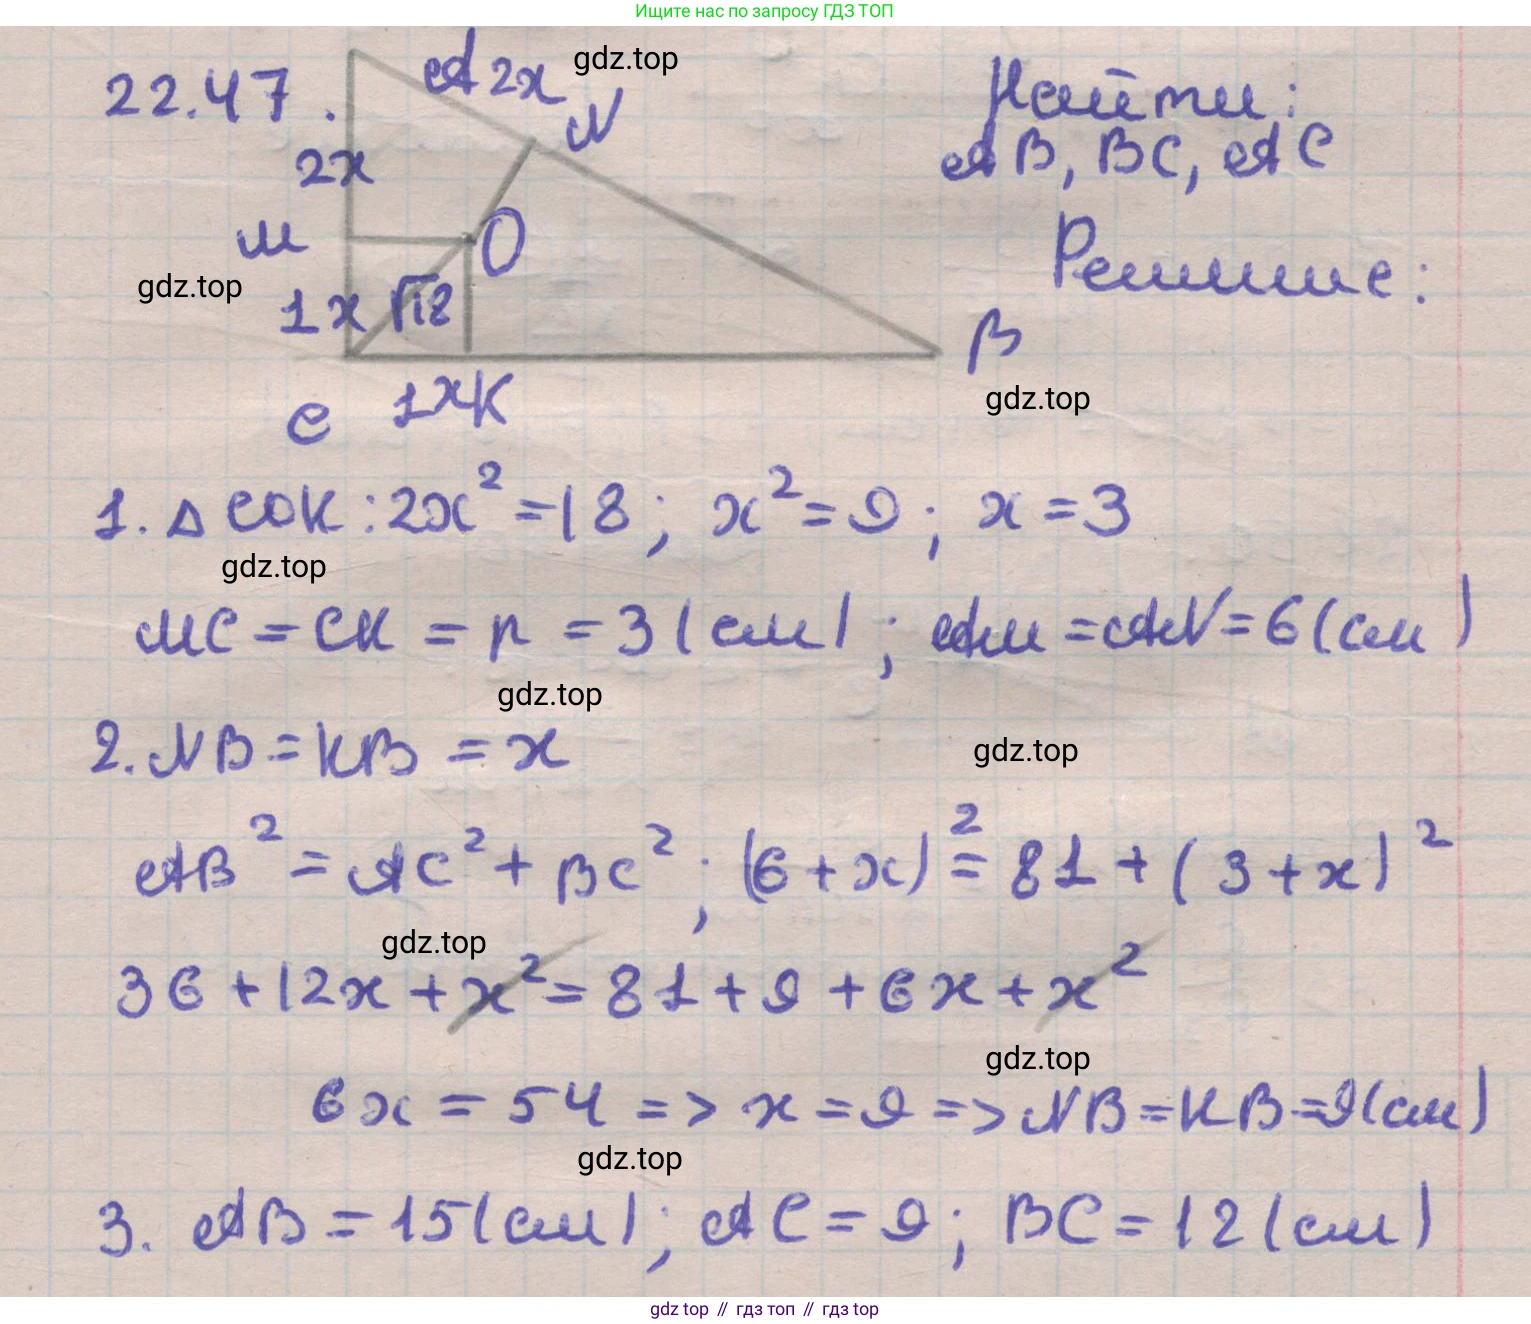 Ищите нас по запросу ГДЗ ТОП
22.47.
A 2x
gdz.top
N
Найти:
AB, BC, AC
2x
M
O
Решение:
gdz.top
1x √18
B
gdz.top
C 1x K
1. △ COK : 2x² = 18; x² = 9; x = 3
gdz.top
MC = CK = r = 3 (см); AM = AN = 6 (см)
gdz.top
2. NB = KB = x
gdz.top
AB² = AC² + BC²; (6 + x)² = 81 + (3 + x)²
gdz.top
36 + 12x + x² = 81 + 9 + 6x + x²
gdz.top
6x = 54 => x = 9 => NB = KB = 9 (см)
gdz.top
3. AB = 15 (см); AC = 9; BC = 12 (см)
gdz top // гдз топ // гдз top